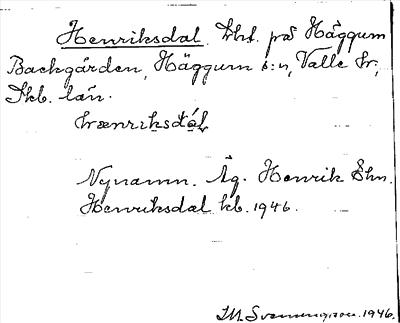 Henriksdal. Lht. på Häggum
Backgården, Häggum s:n, Valle hr;
Skb. län.
hænriksdál
Nynamn. Äg. Henrik Ehn.
Henriksdal kb. 1946.
1946.